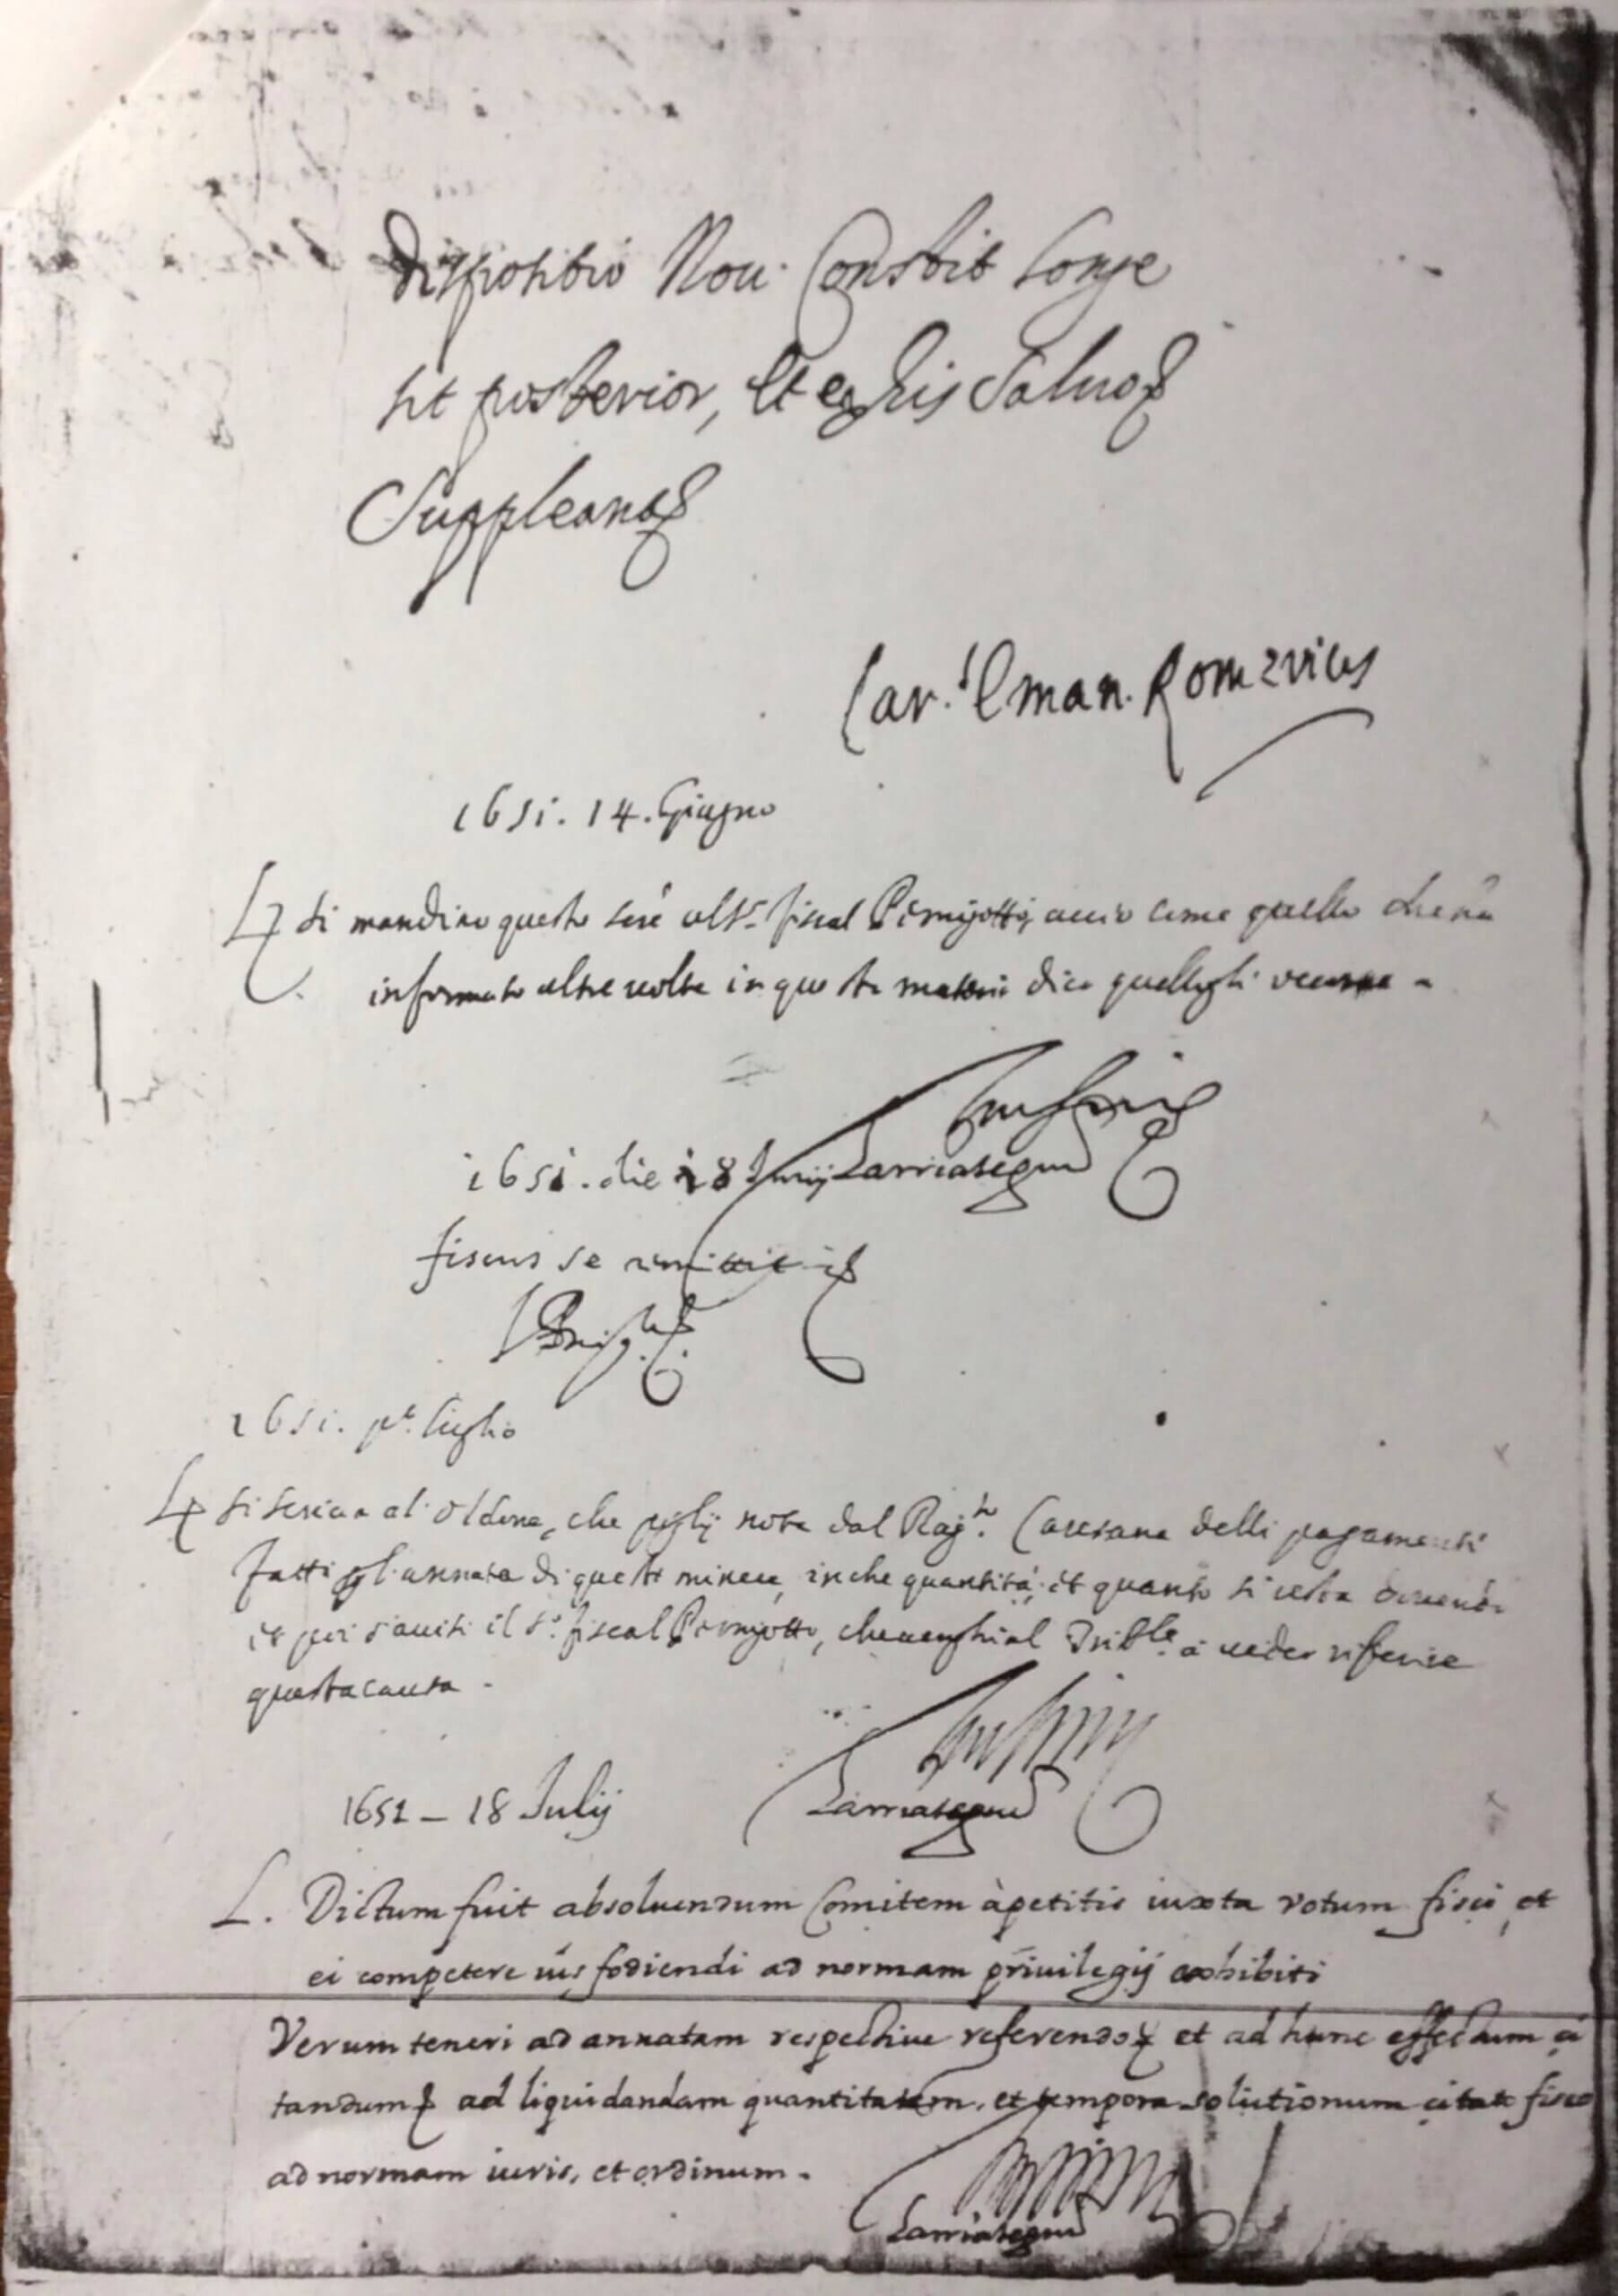 dispositio Nou. Constit longe
sit posterior, et ex his Saluo
Suppleans
Car. Eman. Romerius
1651. 14. Giugno
Si mandino queste al S.r fiscal Pirnigotti, accio come quello che
informato altre volte in questa materia dica quello gli occorre
1651. die 18 Junij Larriategui
fiscus se remittit
1651. p.º luglio
Si scriua al Oldone, che pigli nota dal Rag.to Caresana delli pagamenti
fatti annata di queste minere, in che quantità, et quanto si resta
et poi s'auisi il S.r fiscal Pirnigotto, che uenghi al Trib.le à ueder riferire
questa causa.
1651 - 18 Julij Larriategui
L. Dictum fuit absoluendum Comitem à petitis iuxta votum fisci, et
ei competere ius fodiendi ad normam priuilegij exhibiti
Verum teneri ad annatam respectiue et ad hunc effectum ci
tandum ad liquidandam quantitatem, et tempora solutionum citato fisco
ad normam iuris, et ordinum.
Larriategui